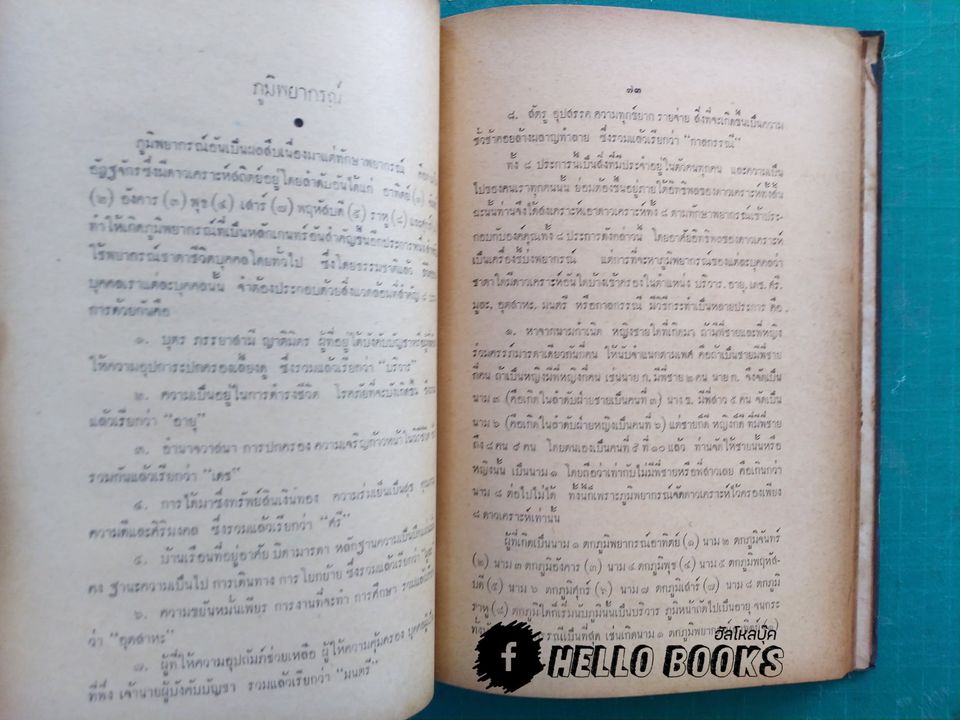 ภูมิพยากรณ์
ภูมิพยากรณ์อันเป็นผลสืบเนื่องมาแต่ทักษาพยากรณ์
อัฏฐจักรซึ่งมีดาวเคราะห์สถิตย์อยู่โดยลำดับอันได้แก่ อาทิตย์ (๑)
(๒) อังคาร (๓) พุธ (๔) เสาร์ (๗) พฤหัสบดี (๕) ราหู (๘)
ทำให้เกิดภูมิพยากรณ์ที่เป็นหลักเกณฑ์อันสำคัญขึ้นอีกประการหนึ่ง
ใช้พยากรณ์ชาตาชีวิตบุคคลโดยทั่วไป ซึ่งโดยธรรมชาติแล้ว
บุคคลเราแต่ละบุคคลนั้น จำต้องประกอบด้วยสิ่งแวดล้อมที่สำคัญ ๘
การด้วยกันคือ
๑. บุตร ภรรยาสามี ญาติมิตร ผู้ที่อยู่ใต้บังคับบัญชาหรือผู้ที่
ให้ความอุปการะปกครองเลี้ยงดู ซึ่งรวมแล้วเรียกว่า "บริวาร"
๒. ความเป็นอยู่ในการดำรงชีวิต โรคภัยที่จะบังเกิดขึ้น
แล้วเรียกว่า "อายุ"
๓. อำนาจวาสนา การปกครอง ความเจริญก้าวหน้าในชีวิต
รวมกันแล้วเรียกว่า "เดช"
๔. การได้มาซึ่งทรัพย์สินเงินทอง ความร่มเย็นเป็นสุข
ความดีและศิริมงคล ซึ่งรวมแล้วเรียกว่า "ศรี"
๕. บ้านเรือนที่อยู่อาศัย บิดามารดา หลักฐานความเป็นปึกแผ่น
คง ฐานะความเป็นไป การเดินทาง การโยกย้าย ซึ่งรวมแล้วเรียกว่า
๖. ความขยันหมั่นเพียร การงานที่จะทำ การศึกษา รวมแล้วเรียก
ว่า "อุตสาหะ"
๗. ผู้ที่ให้ความอุปถัมภ์ช่วยเหลือ ผู้ให้ความคุ้มครอง
ที่พึ่ง เจ้านายผู้บังคับบัญชา รวมแล้วเรียกว่า "มนตรี"
๗๓
๘. ศัตรู อุปสรรค ความทุกข์ยาก รายจ่าย สิ่งที่จะเกิดขึ้นเป็นความ
ชั่วช้าคอยล้างผลาญทำลาย ซึ่งรวมแล้วเรียกว่า "กาลกรรณี"
ทั้ง ๘ ประการนี้เป็นสิ่งที่มีประจำอยู่ในตัวคนทุกคน และความเป็น
ไปของคนเราทุกคนนั้น ย่อมต้องขึ้นอยู่ภายใต้อิทธิพลของดาวเคราะห์ทั้งสิ้น
ฉะนั้นท่านจึงได้สงเคราะห์เอาดาวเคราะห์ทั้ง ๘ ตามทักษาพยากรณ์เข้าประ-
กอบกับองค์คุณทั้ง ๘ ประการดังกล่าวนี้ โดยอาศัยอิทธิพลของดาวเคราะห์
เป็นเครื่องชี้บ่งพยากรณ์ แต่การที่จะหาภูมิพยากรณ์ของแต่ละบุคคลว่า
ชาตาใดมีดาวเคราะห์อันใดบ้างเข้าครองในตำแหน่ง บริวาร. อายุ, เดช. ศรี.
มูละ, อุตสาหะ, มนตรี หรือกาลกรรณี มีวิธีกระทำเป็นหลายประการ คือ.
๑. หาจากนามกำเนิด หญิงชายใดที่เกิดมา ถ้ามีพี่ชายและพี่หญิง
ร่วมครรภ์มารดาเดียวกันกี่คน ให้นับจำแนกตามเพศ คือถ้าเป็นชายมีพี่ชาย
กี่คน ถ้าเป็นหญิงมีพี่หญิงกี่คน เช่นนาย ก. มีพี่ชาย ๒ คน นาย ก. จึงจัดเป็น
นาม ๓ (คือเกิดในลำดับฝ่ายชายเป็นคนที่ ๓) นาง ข. มีพี่สาว ๕ คน จัดเป็น
นาม ๖ (คือเกิดในลำดับฝ่ายหญิงเป็นคนที่ ๖) แต่ชายก็ดี หญิงก็ดี ที่มีพี่ชาย
ถึง ๘ คน ๙ คน โดยตนเองเป็นคนที่ ๙ ที่ ๑๐ แล้ว ท่านจัดให้ชายนั้นหรือ
หญิงนั้น เป็นนาม ๑ โดยถือว่าเท่ากับไม่มีพี่ชายหรือพี่สาวเลย คือเกินกว่า
นาม ๘ ต่อไปไม่ได้ ทั้งนี้ก็เพราะภูมิพยากรณ์จัดดาวเคราะห์ไว้ครองเพียง
๘ ดาวเคราะห์เท่านั้น
ผู้ที่เกิดเป็นนาม ๑ ตกภูมิพยากรณ์อาทิตย์ (๑) นาม ๒ ตกภูมิจันทร์
(๒) นาม ๓ ตกภูมิอังคาร (๓) นาม ๔ ตกภูมิพุธ (๔) นาม ๕ ตกภูมิพฤหัส-
บดี (๕) นาม ๖ ตกภูมิศุกร์ (๖) นาม ๗ ตกภูมิเสาร์ (๗) นาม ๘ ตกภูมิ
ราหู (๘) ตกภูมิใดก็เริ่มนับภูมินั้นเป็นบริวาร ภูมิหน้าถัดไปเป็นอายุ จนกระ
เป็นที่สุด เช่นเกิดนาม ๑ ตกภูมิพยากรณ์
ฮัลโหลบุ๊ค
f HELLO BOOKS